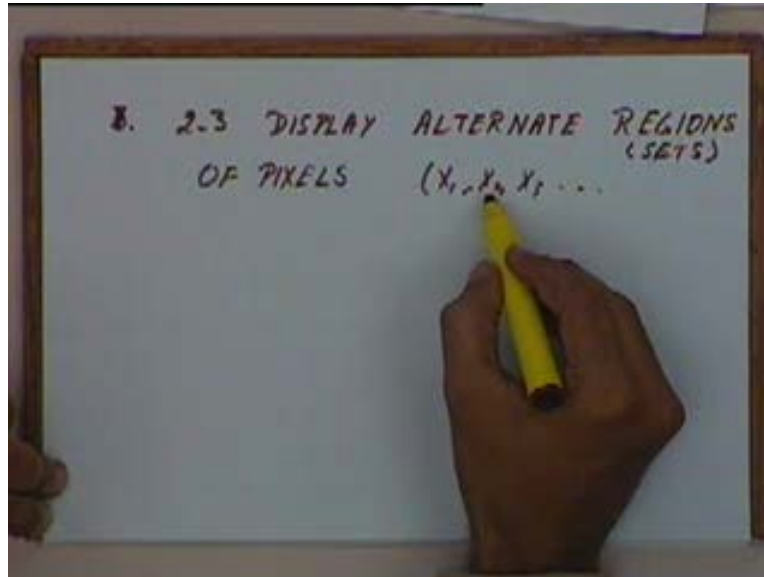 8. 2-3 DISPLAY ALTERNATE REGIONS
(SETS)
OF PIXELS (X₁, X₂, X₃ ...